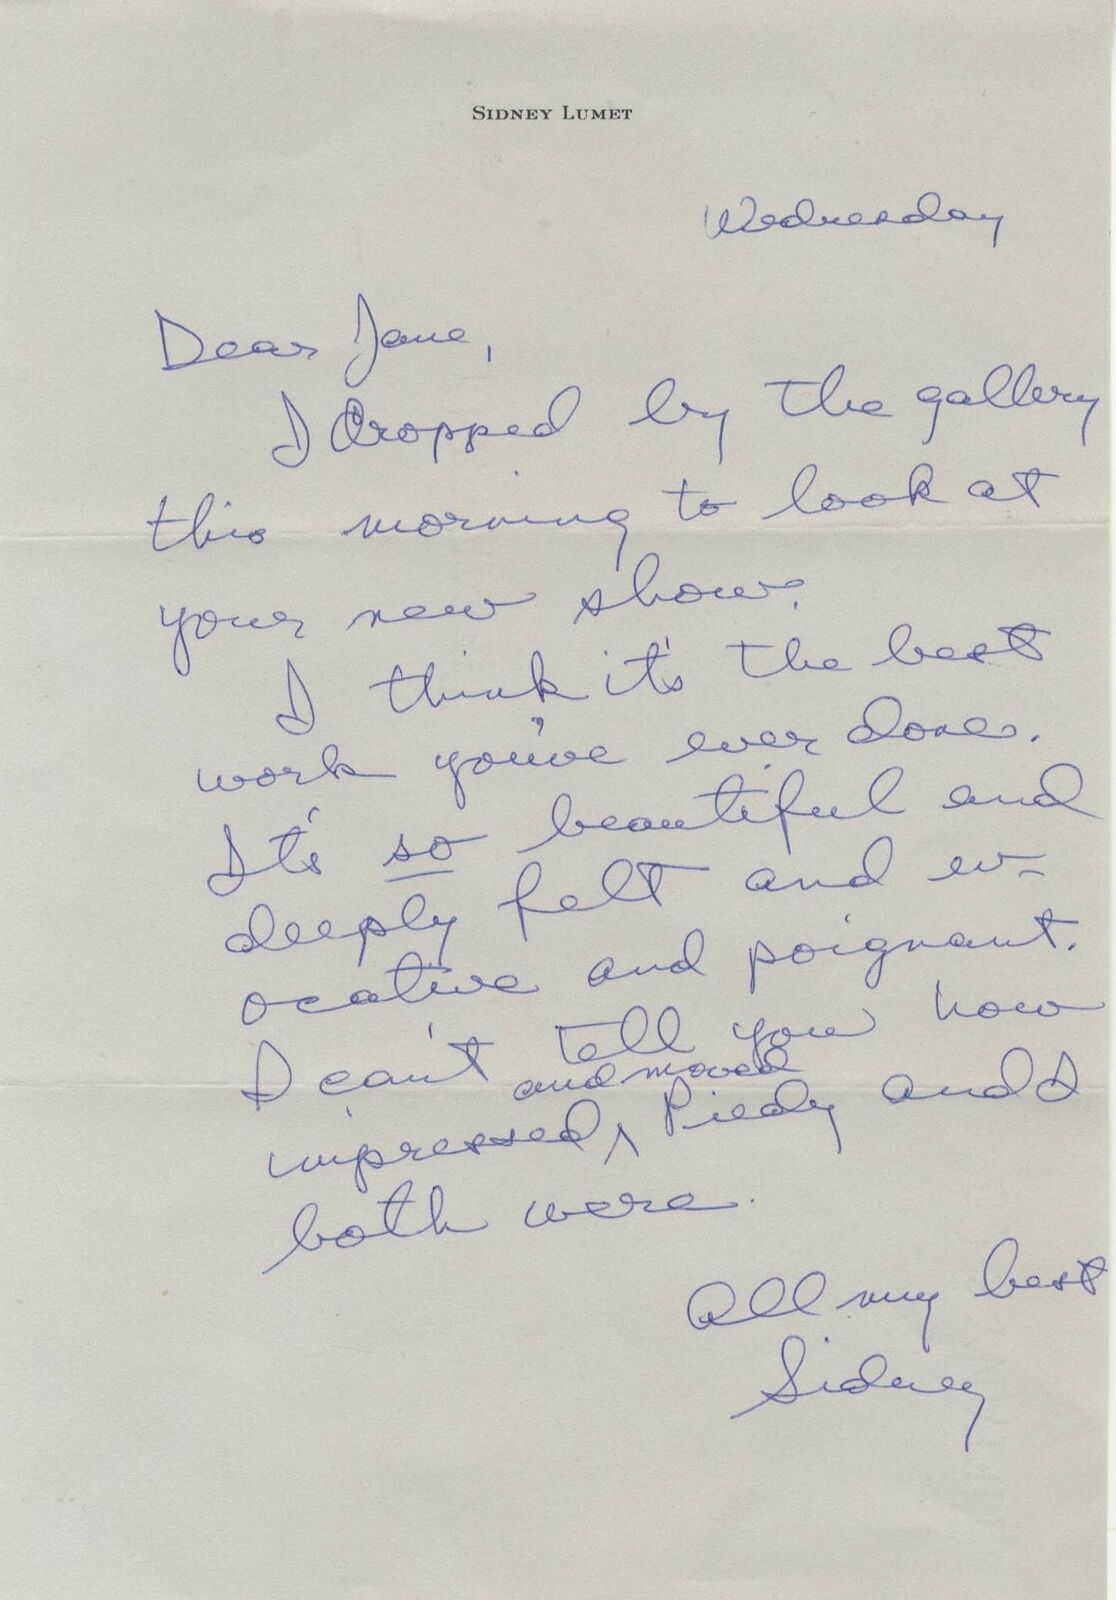 SIDNEY LUMET
Wednesday
Dear Jane,
I dropped by the gallery
this morning to look at
your new show.
I think it's the best
work you've ever done.
It's so beautiful and
deeply felt and ev-
ocative and poignant.
I can't tell you how
and moved
impressed, ^ Piedy and I
both were.
All my best
Sidney